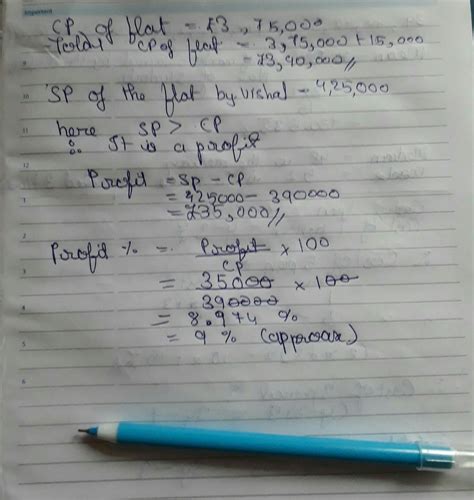 CP of flat = ₹3,75,000
Total CP of flat = 3,75,000 + 15,000
= ₹3,90,000//
SP of the flat by Vishal = 4,25,000
here SP > CP
∴ It is a profit
Profit = SP - CP
= 425000 - 390000
= ₹35,000//
Profit % = Profit/CP × 100
= 35000/390000 × 100
= 8.974 %
= 9 % (approax)